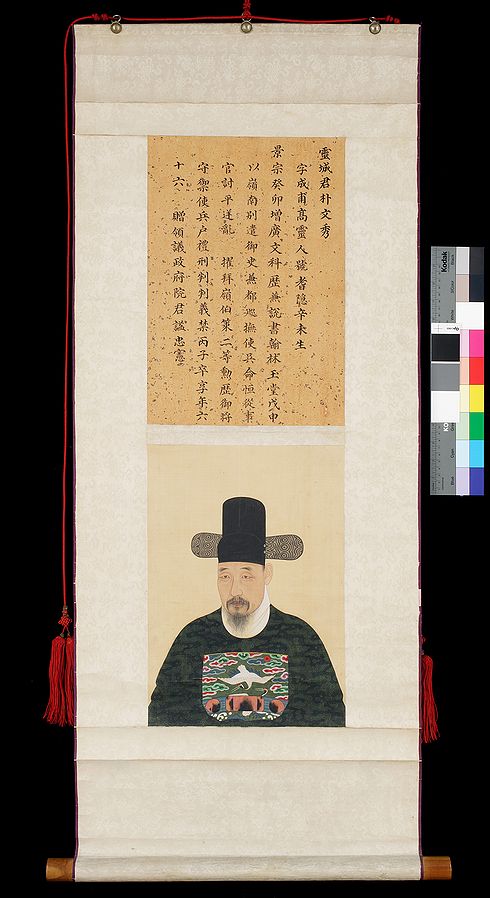 靈城君朴文秀
字成甫高靈人號耆隱辛未生
景宗癸卯增廣文科歷兼說書翰林玉堂戊申
以嶺南別遣御史兼都巡撫使吳命恒從事
官討平逆亂 擢拜嶺伯策二等勳歷御將
守禦使兵戶禮刑判判義禁丙子卒享年六
十六 贈領議政府院君諡忠憲
Kodak